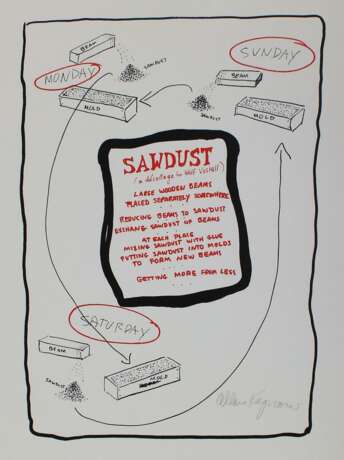 BEAM
SAWDUST
MONDAY
MOLD
SUNDAY
BEAM
SAWDUST
MOLD
SAWDUST
LARGE WOODEN BEAMS
PLACED SEPARATELY SOMEWHERE
REDUCING BEAMS TO SAWDUST
EXCHANG SAWDUST OF BEAMS
AT EACH PLACE
MIXING SAWDUST WITH GLUE
PUTTING SAWDUST INTO MOLDS
TO FORM NEW BEAMS
GETTING MORE FROM LESS
SATURDAY
BEAM
SAWDUST
MOLD
Allan Kaprow